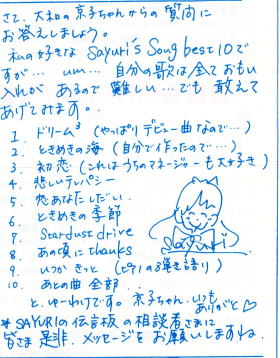 さて、大和の京子ちゃんからの質問に
お答えしましょう。
私の好きな Sayuri's Song best 10で
すが… um… 自分の歌は全ておもい
入れが あるので難しい…でも 敢えて
あげてみます。
1. ドリーム³ (やっぱりデビュー曲なので…)
2. ときめきの海 (自分で作ったので…)
3. 初恋 (これはうちのマネージャーも大好き)
4. 悲しいテンパシー
5. 恋あなたしだい.
6. ときめきの季節
7. Stardust drive
8. あの頃に thanks
9. いつか きっと (ピアノの弾き語り)
10. あとの曲 全部..
と、ゆーわけです。京子ちゃん、いつも
ありがと♡
Sayuri
* SAYURIの伝言板の相談者さまに
皆さま 是非、メッセージをお願いしますね.